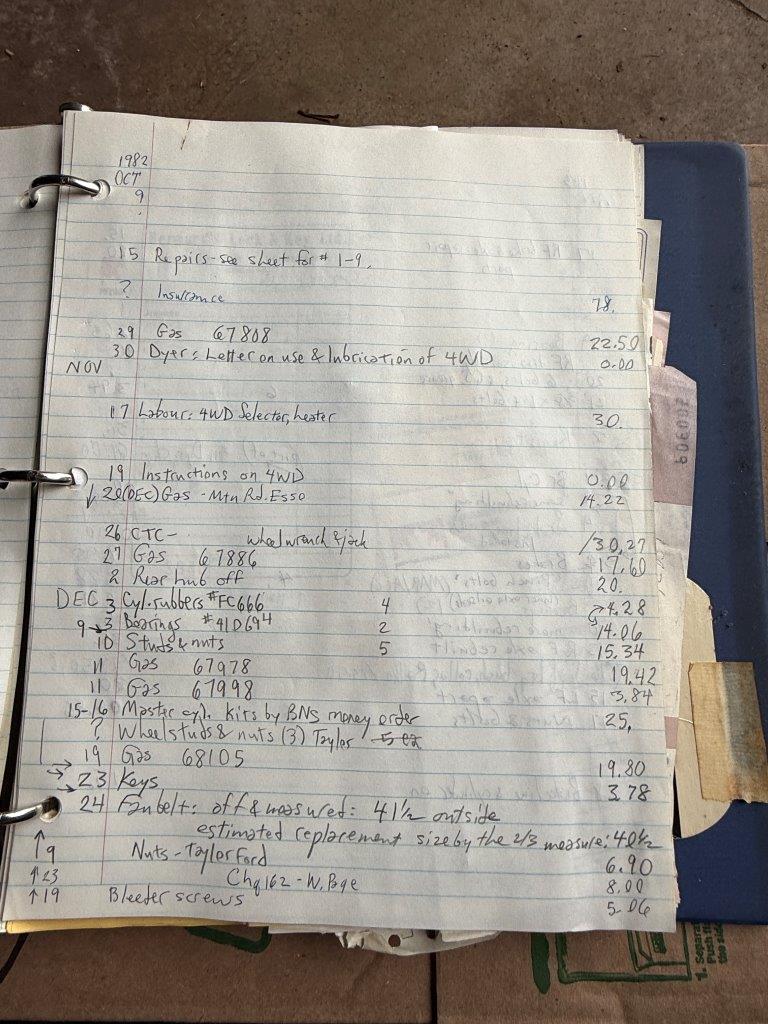 1982
OCT
9
15 Repairs - see sheet for # 1-9.
? Insurance 78.
29 Gas 67808 22.50
30 Dyer: Letter on use & lubrication of 4WD 0.00
NOV
17 Labour: 4WD Selector, heater 30.
19 Instructions on 4WD 0.00
↓ 20(DEC) Gas - Mtn Rd. Esso 14.22
26 CTC - wheel wrench & jack 30.27
27 Gas 67886 17.60
2 Rear hub off 20.
DEC 3 Cyl. rubbers #FC666 4 4.28
9→3 Bearings #41D694 2 14.06
10 Studs & nuts 5 15.34
11 Gas 67978 19.42
11 Gas 67998 3.84
15-16 Master cyl. kits by BNS money order 25.
? Wheel studs & nuts (3) Taylor 5 ea
19 Gas 68105 19.80
23 Keys 3.78
24 Fan belt: off & measured: 41 1/2 outside
estimated replacement size by the 2/3 measure: 40 1/2
↑9 Nuts - Taylor Ford 6.90
↑23 Chq 162 - W. Page 8.00
↑19 Bleeder screws 5.06
1. Separa
Push f
the sid